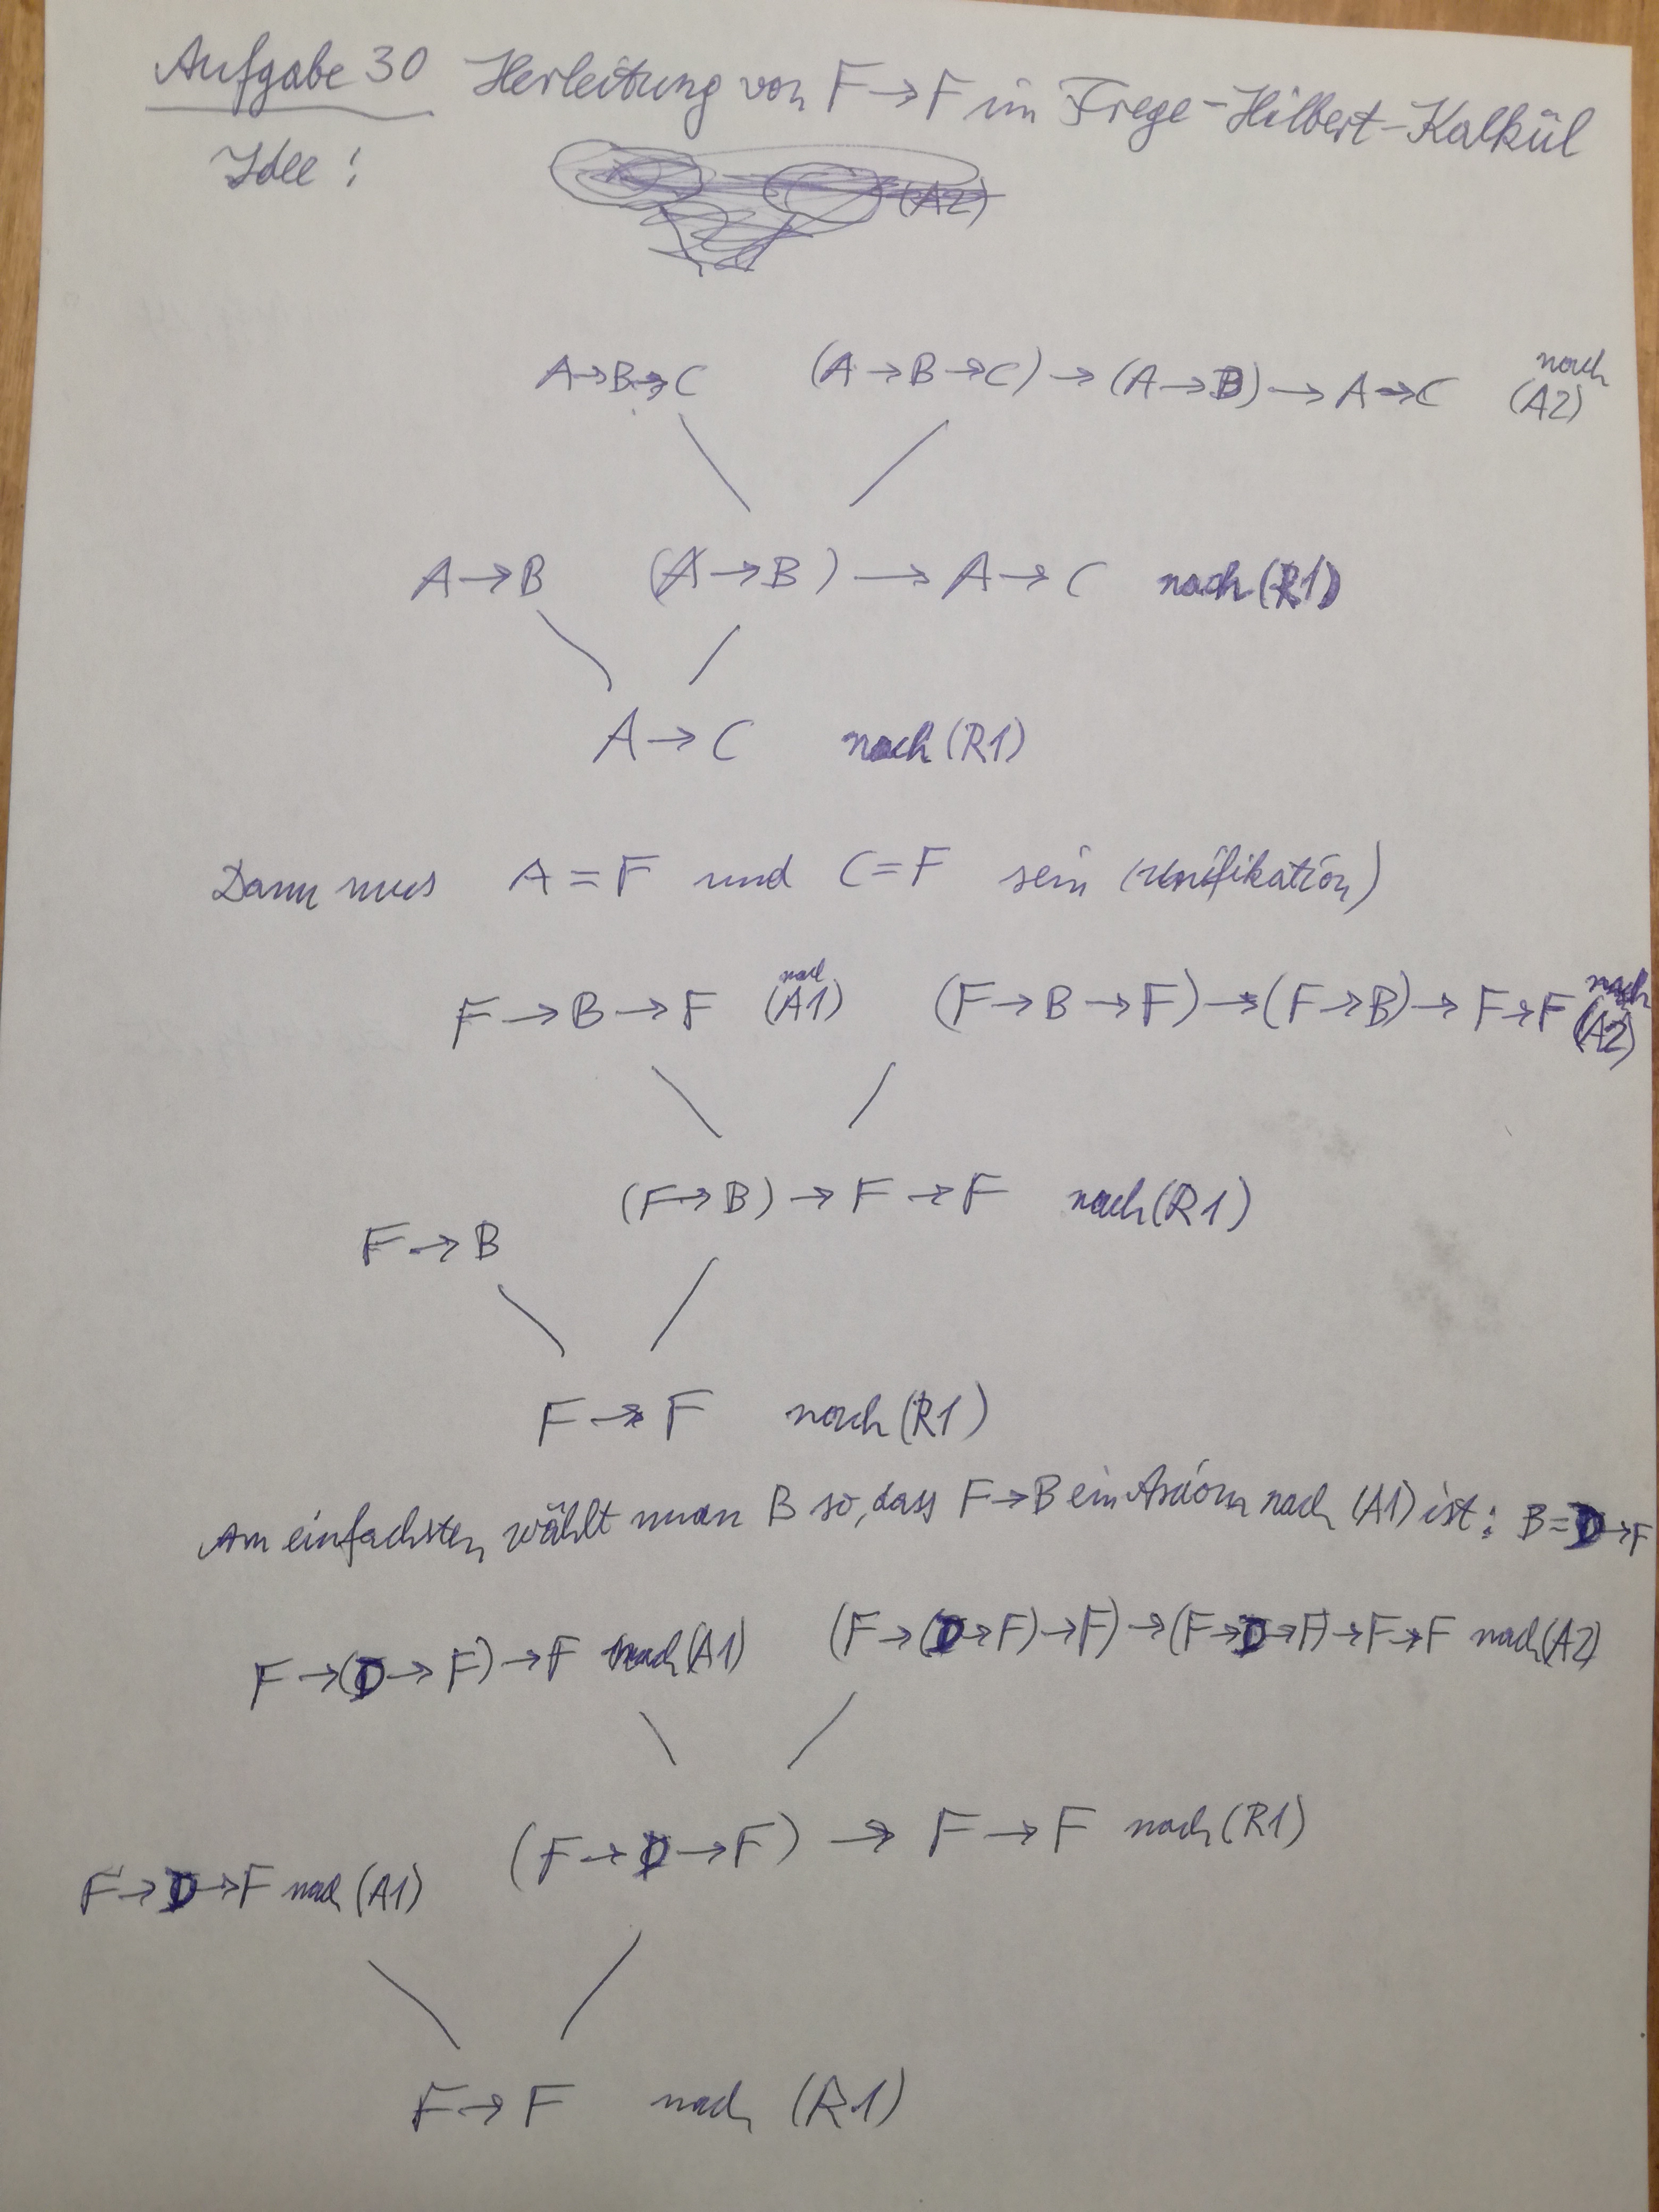 Aufgabe 30 Herleitung von F→F im Frege-Hilbert-Kalkül
Idee:
(A2)
A→B→C (A→B→C)→(A→B)→A→C nach (A2)
A→B (A→B)→A→C nach (R1)
A→C nach (R1)
Dann mus A=F und C=F sein (Unifikation)
F→B→F nach (A1) (F→B→F)→(F→B)→F→F nach (A2)
F→B (F→B)→F→F nach (R1)
F→F nach (R1)
Am einfachsten wählt man B so, dass F→B ein Axiom nach (A1) ist: B=D→F
F→(D→F)→F nach (A1) (F→(D→F)→F)→(F→D→F)→F→F nach (A2)
F→D→F nach (A1) (F→D→F)→F→F nach (R1)
F→F nach (R1)